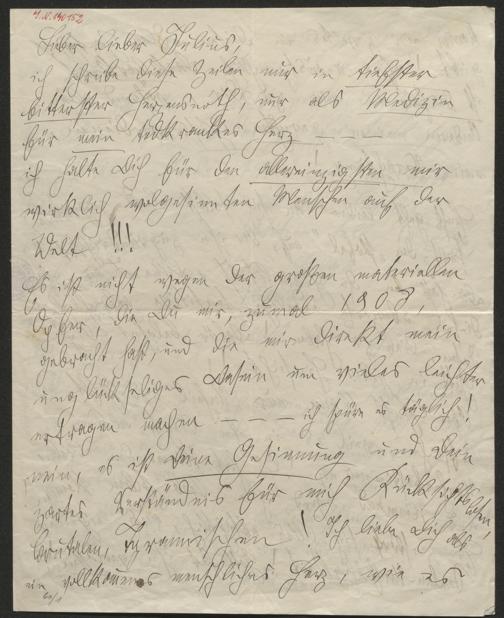 J.N. 140152
Lieber lieber Julius,
ich schreibe diese Zeilen nur in tiefster
bitterster Herzensnoth, nur als Medizin
für mein todtkrankes Herz — — —
ich halte Dich für den allereinzigsten mir
wirklich wolgesinnten Menschen auf der
Welt !!!
Es ist nicht wegen der großen materiellen
Opfer, die Du mir, zumal 1908,
gebracht hast, und die mir direkt mein
unglückseliges Dasein um vieles leichter
ertragen machen — — — ich spüre es täglich!
nein, es ist Deine Gesinnung und Dein
zartes Verständnis für mich Rücksichtslosen,
brutalen, Tyrannischen! Ich liebe Dich als
ein vollkommenes menschliches Herz, wie es